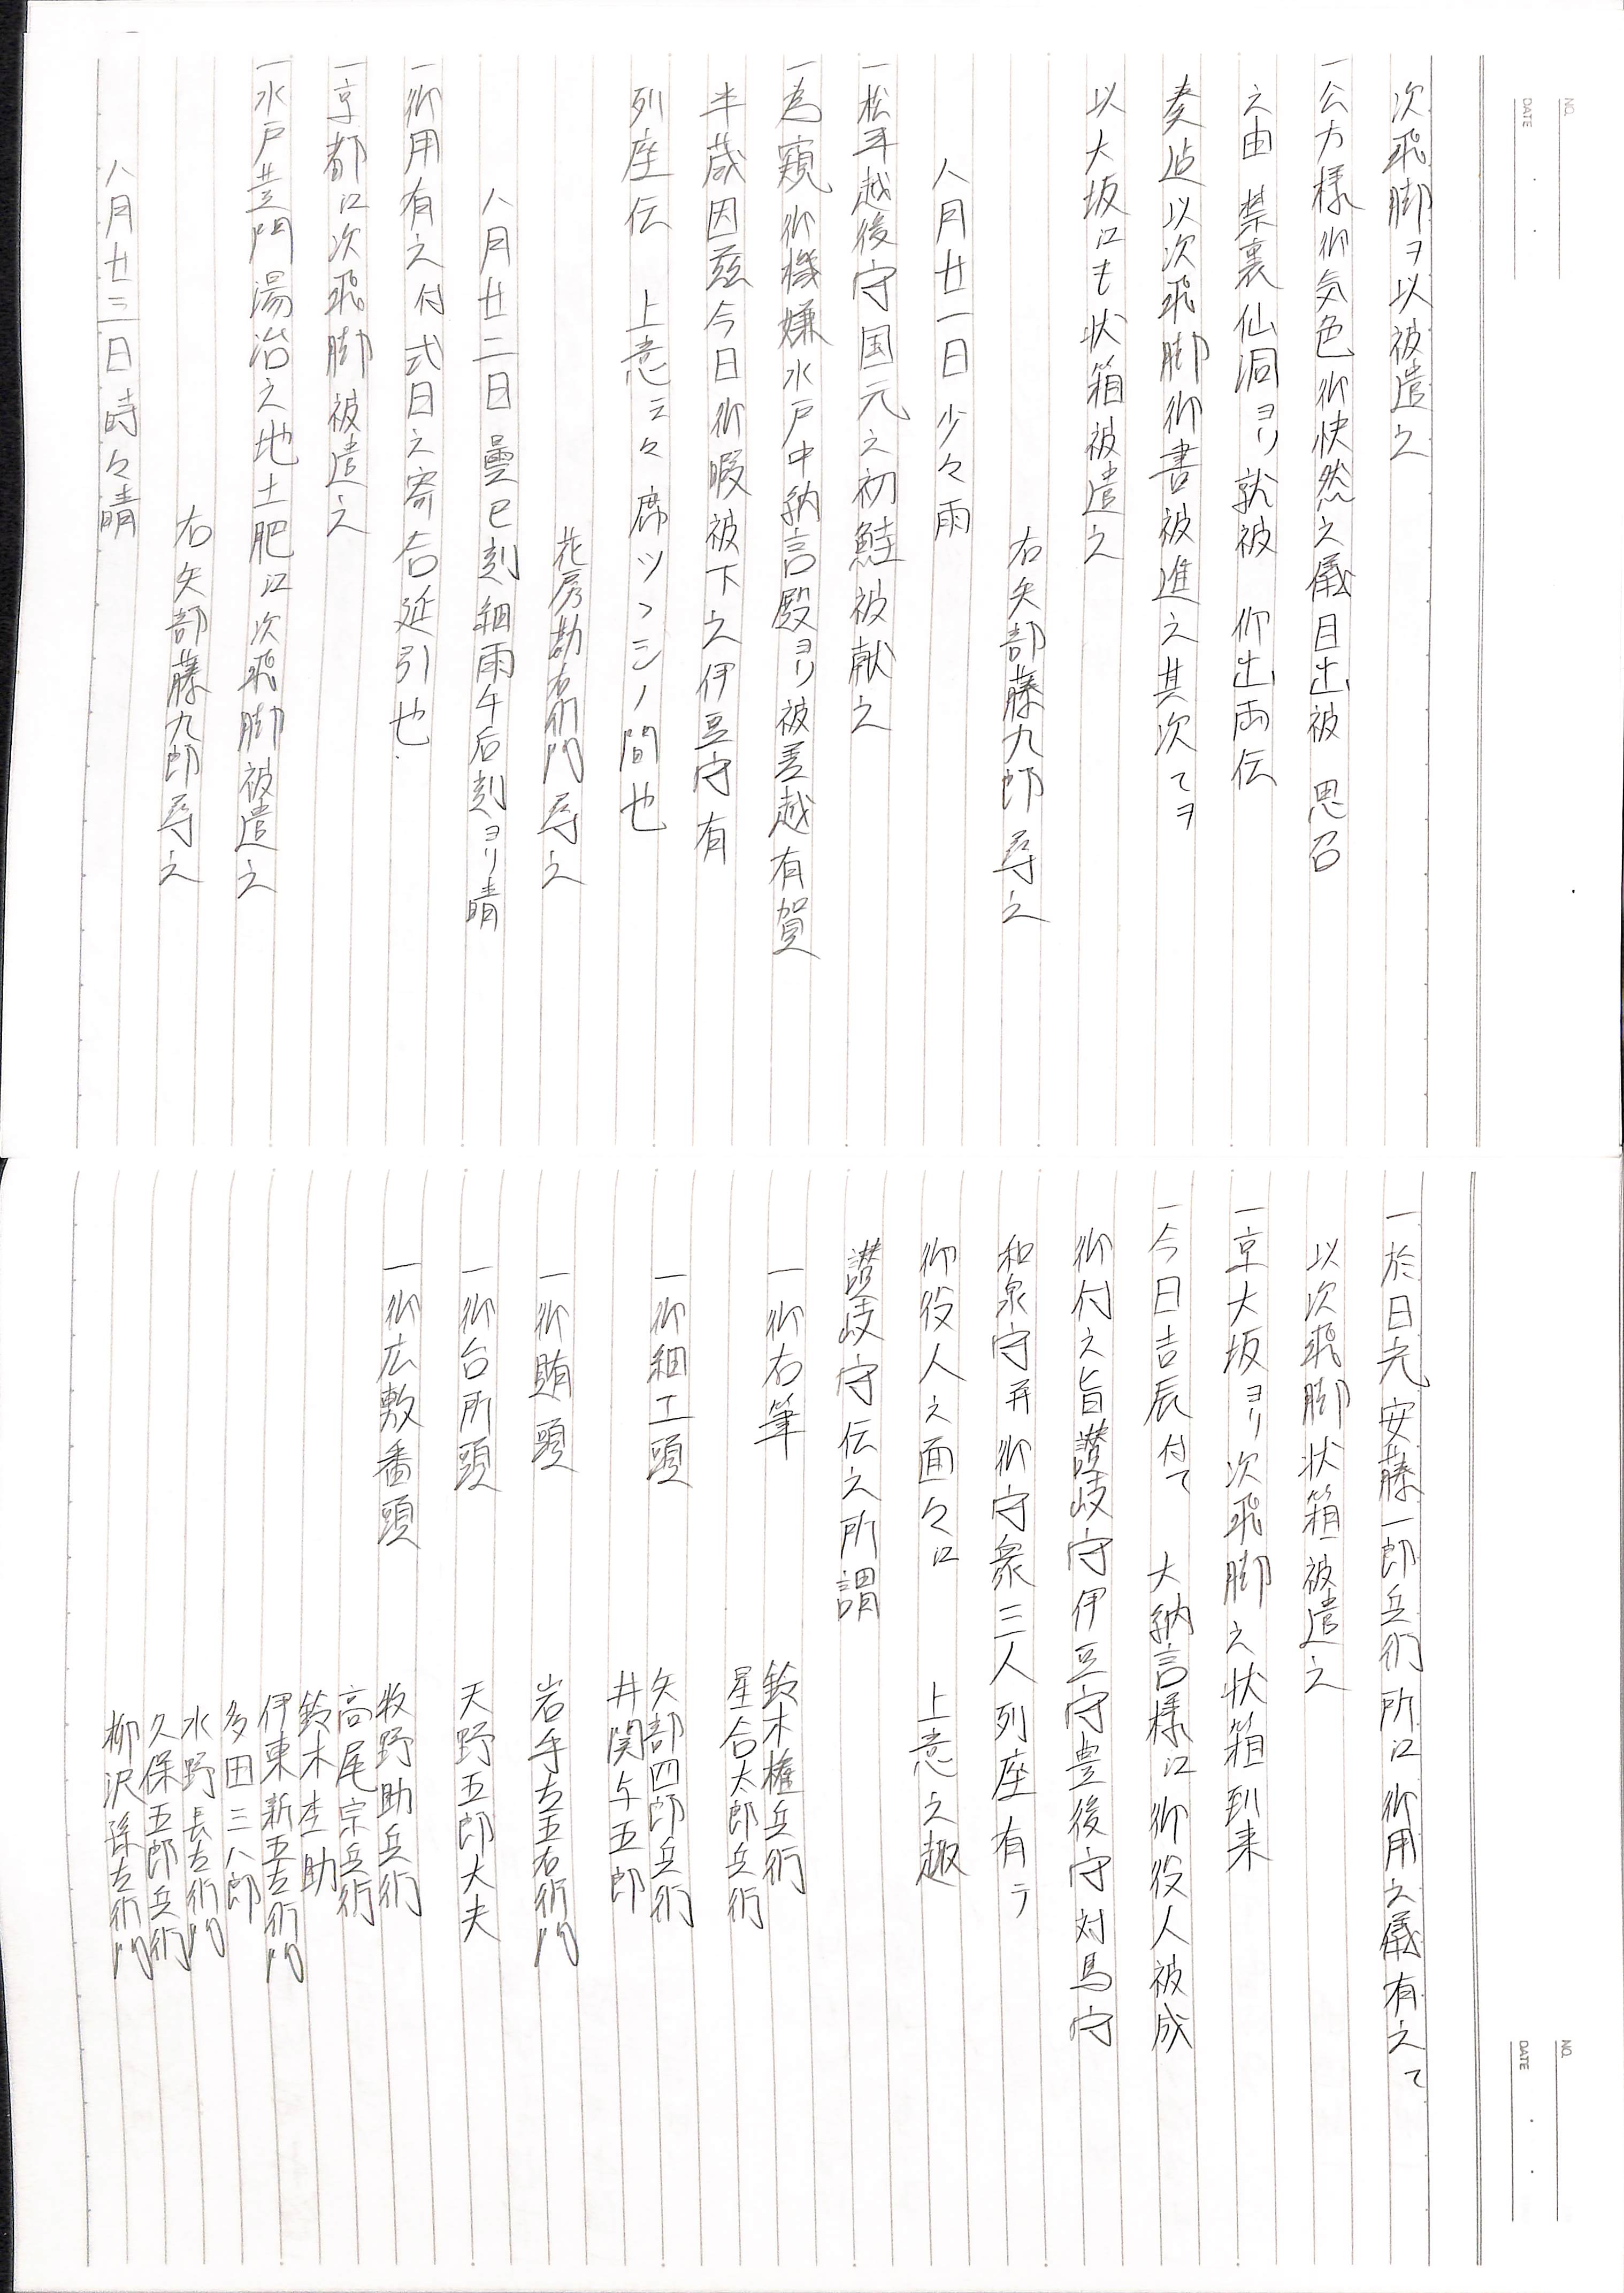 NO.
DATE
次飛脚ヲ以被遣之
一公方様御気色御快然之儀目出被 思召
之由 禁裏仙洞ヨリ就被 仰出両伝
奏迠以次飛脚御書被進之其次てヲ
以大坂江も状箱被遣之
右矢部藤九郎尋之
八月廿一日少々雨
一松平越後守国元之初鮭被献之
一為窺御機嫌水戸中納言殿ヨリ被差越有賀
半蔵因茲今日御暇被下之伊豆守有
列座伝 上意云々席ツヽシノ間也
花房勘右衛門尋之
八月廿二日曇巳刻細雨午后刻ヨリ晴
一御用有之付式日之寄合延引也
一京都江次飛脚被遣之
一水戸黄門湯治之地土肥江次飛脚被遣之
右矢部藤九郎尋之
八月廿三日時々晴
NO.
DATE
一於日光安藤一郎兵衛所江御用之儀有之て
以次飛脚状箱被遣之
一京大坂ヨリ次飛脚之状箱到来
一今日吉辰付て 大納言様江御役人被成
御付之旨讃岐守伊豆守豊後守対馬守
和泉守并御守衆三人列座有テ
御役人之面々江 上意之趣
讃岐守伝之所謂
一御右筆 鈴木権兵衛
星合太郎兵衛
一御細工頭 矢部四郎兵衛
井関与五郎
一御賄頭 岩手左五右衛門
一御台所頭 天野五郎大夫
一御広敷番頭 牧野助兵衛
高尾宗兵衛
鈴木杢助
伊東新五左衛門
多田三八郎
水野長左衛門
久保五郎兵衛
柳沢孫左衛門